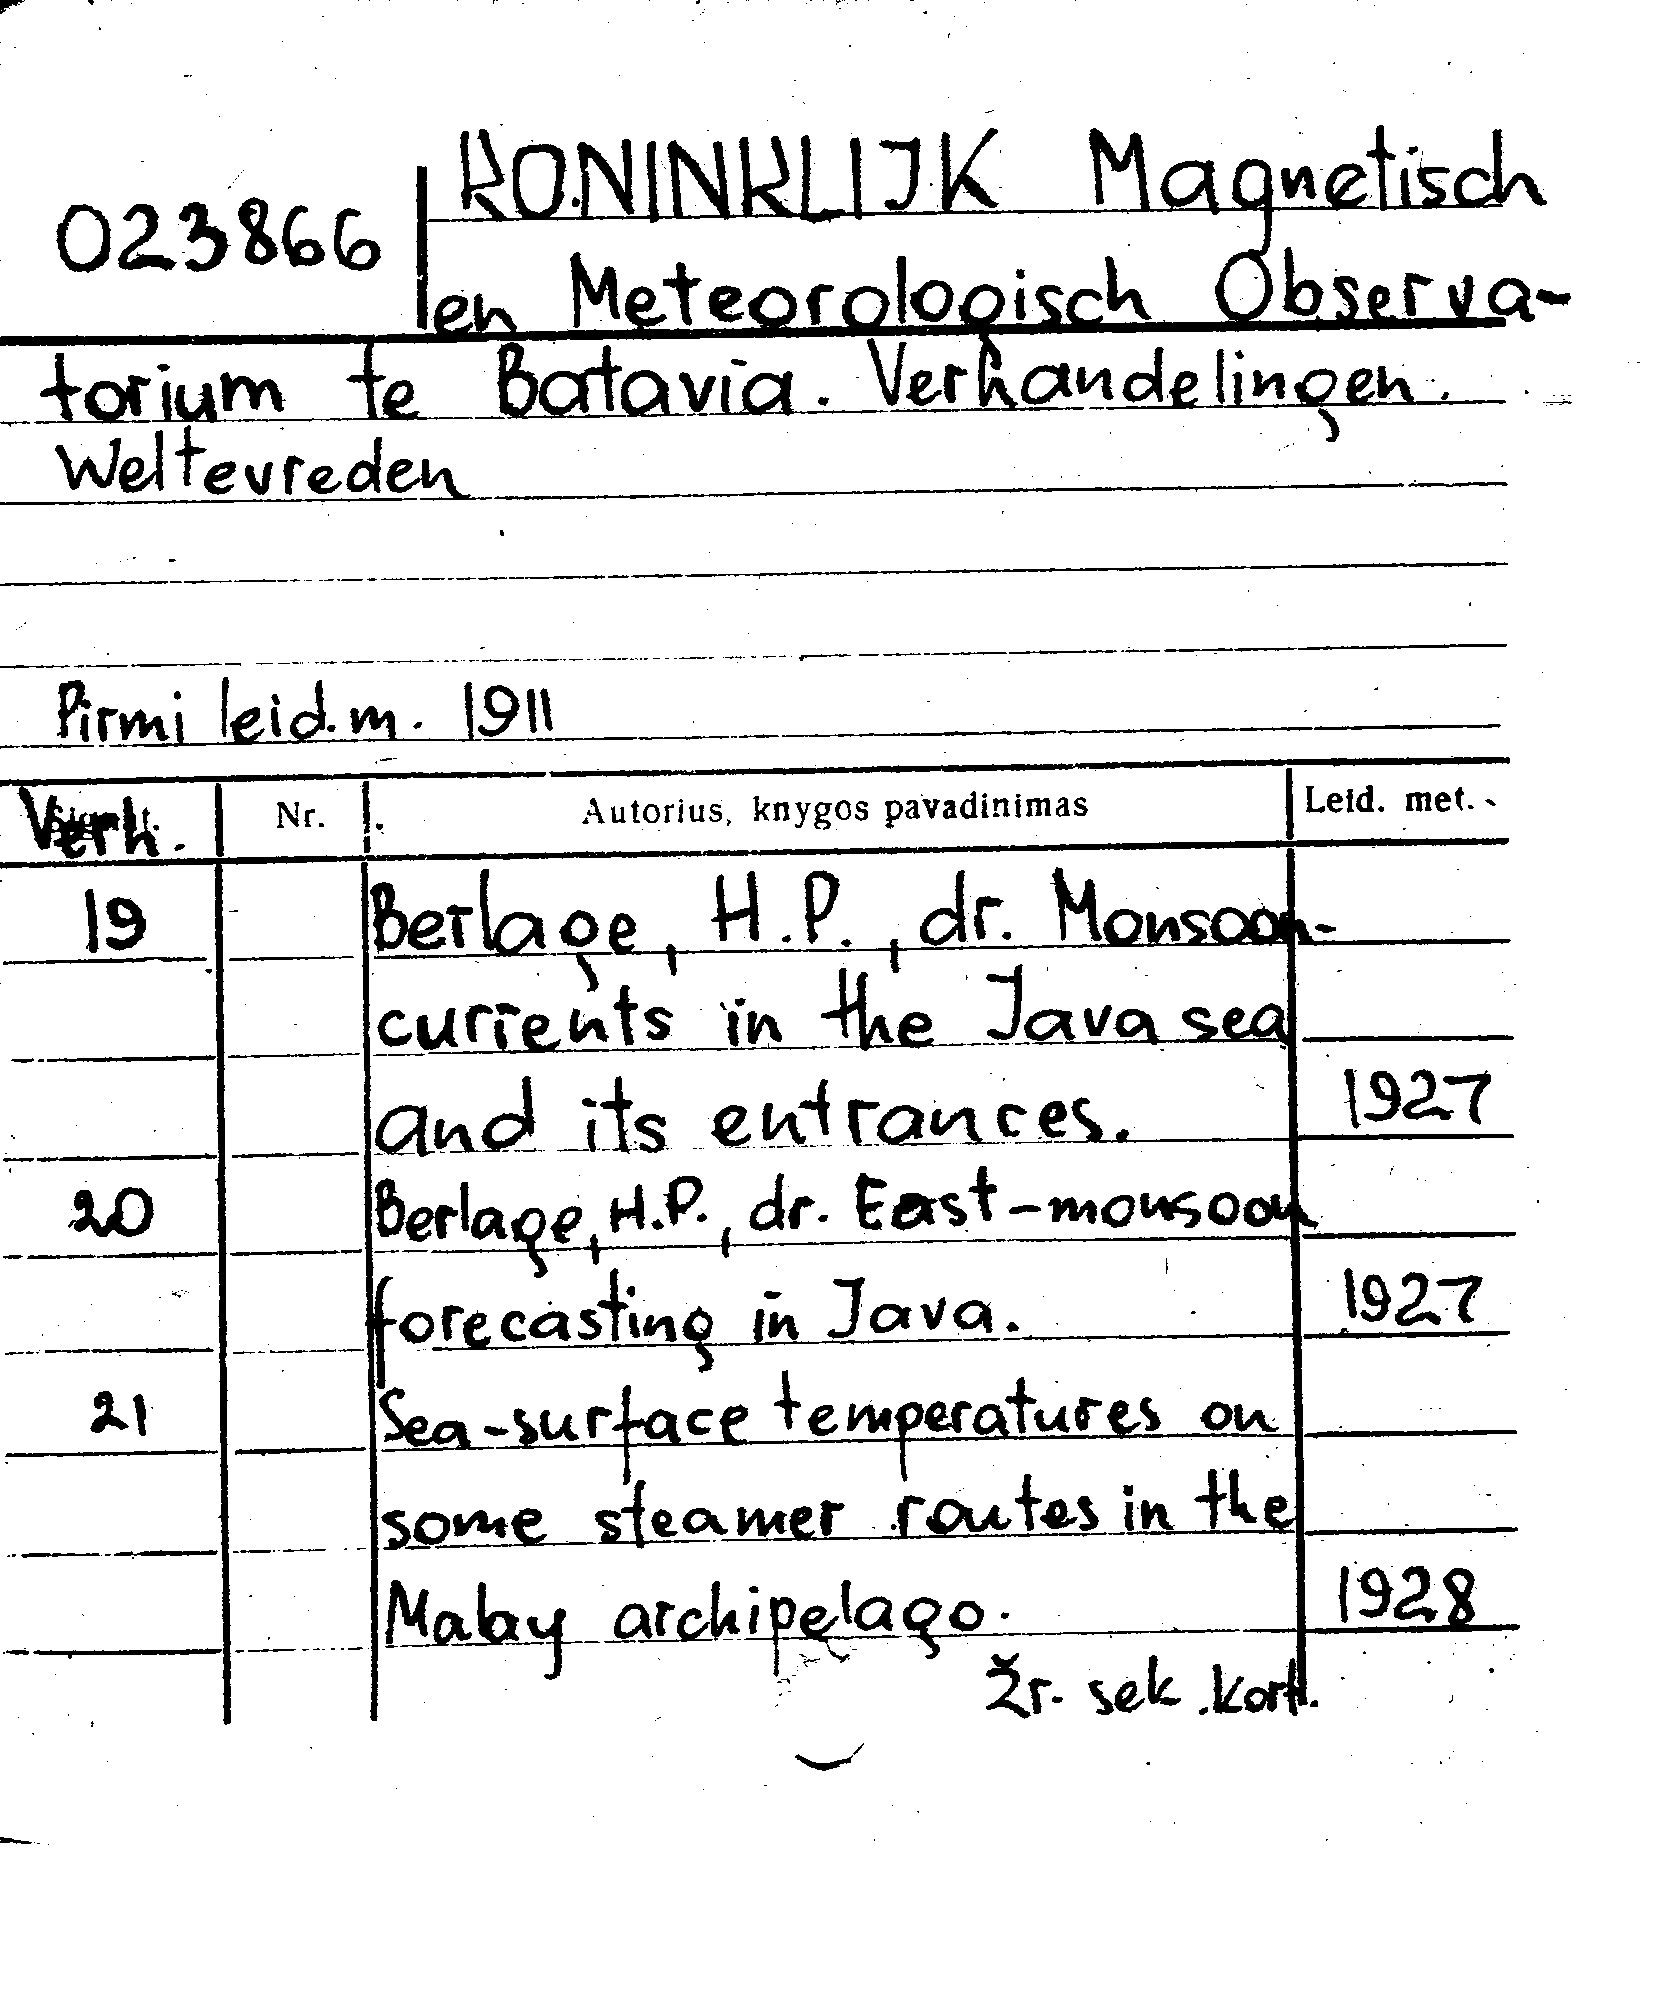 KONINKLIJK Magnetisch
023866 en Meteorologisch Observa-
torium te Batavia. Verhandelingen.
Weltevreden
Pirmi leid. m. 1911
Verh. Nr. Autorius, knygos pavadinimas Leid. met.
19 Berlage, H.P., dr. Monsoon-
currents in the Java sea
and its entrances. 1927
20 Berlage, H.P., dr. East-monsoon
forecasting in Java. 1927
21 Sea-surface temperatures on
some steamer routes in the
Malay archipelago. 1928
Žr. sek. kort.